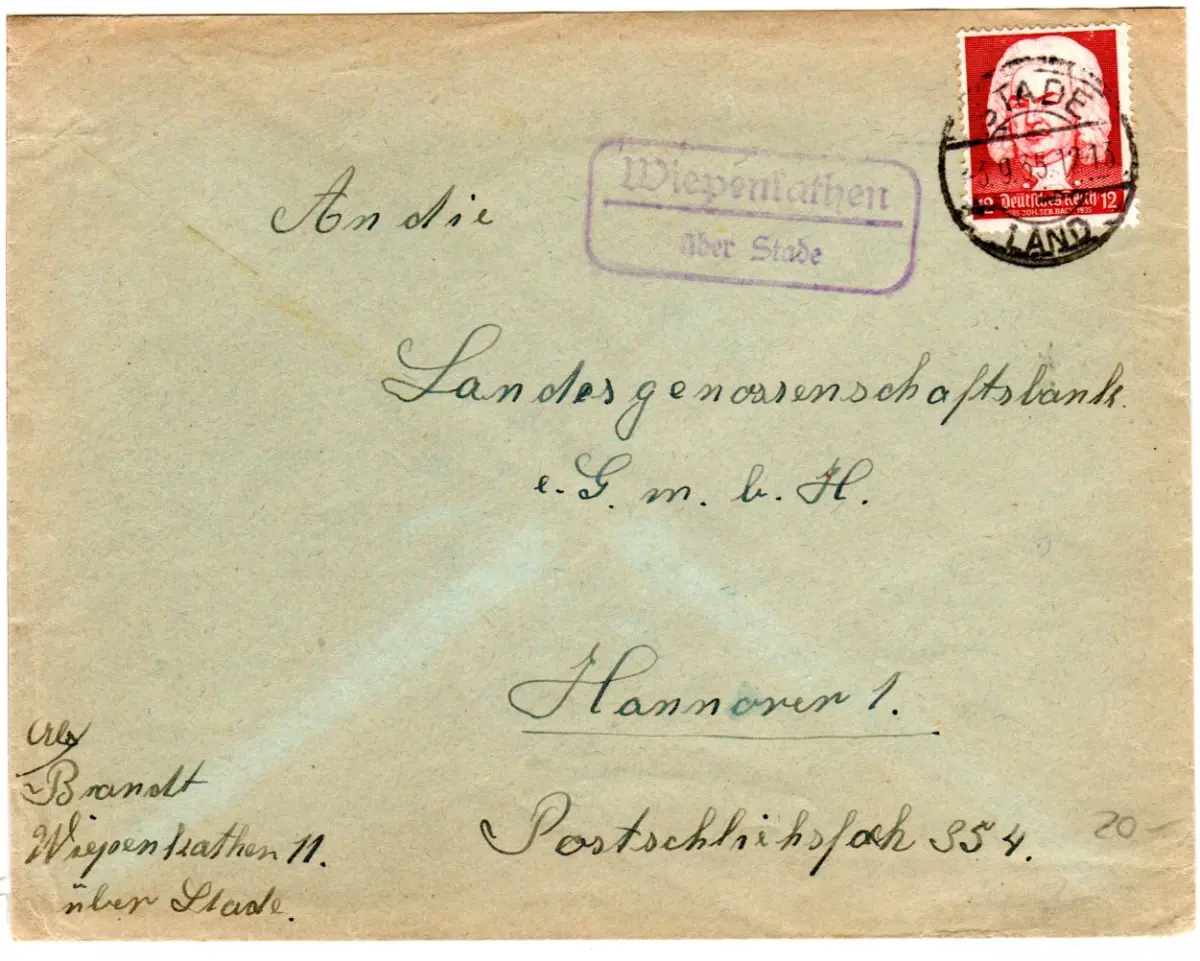 STADE
-3.9.35.12-13
LAND
12 Deutsches Reich 12
1685 JOH. SEB. BACH 1935
Wiepenkathen
über Stade
An die
Landesgenossenschaftsbank.
e. G. m. b. H.
Hannover 1.
Postschliehsfach 354.
20-
Abs
Brandt
Wiepenkathen 11.
über Stade.